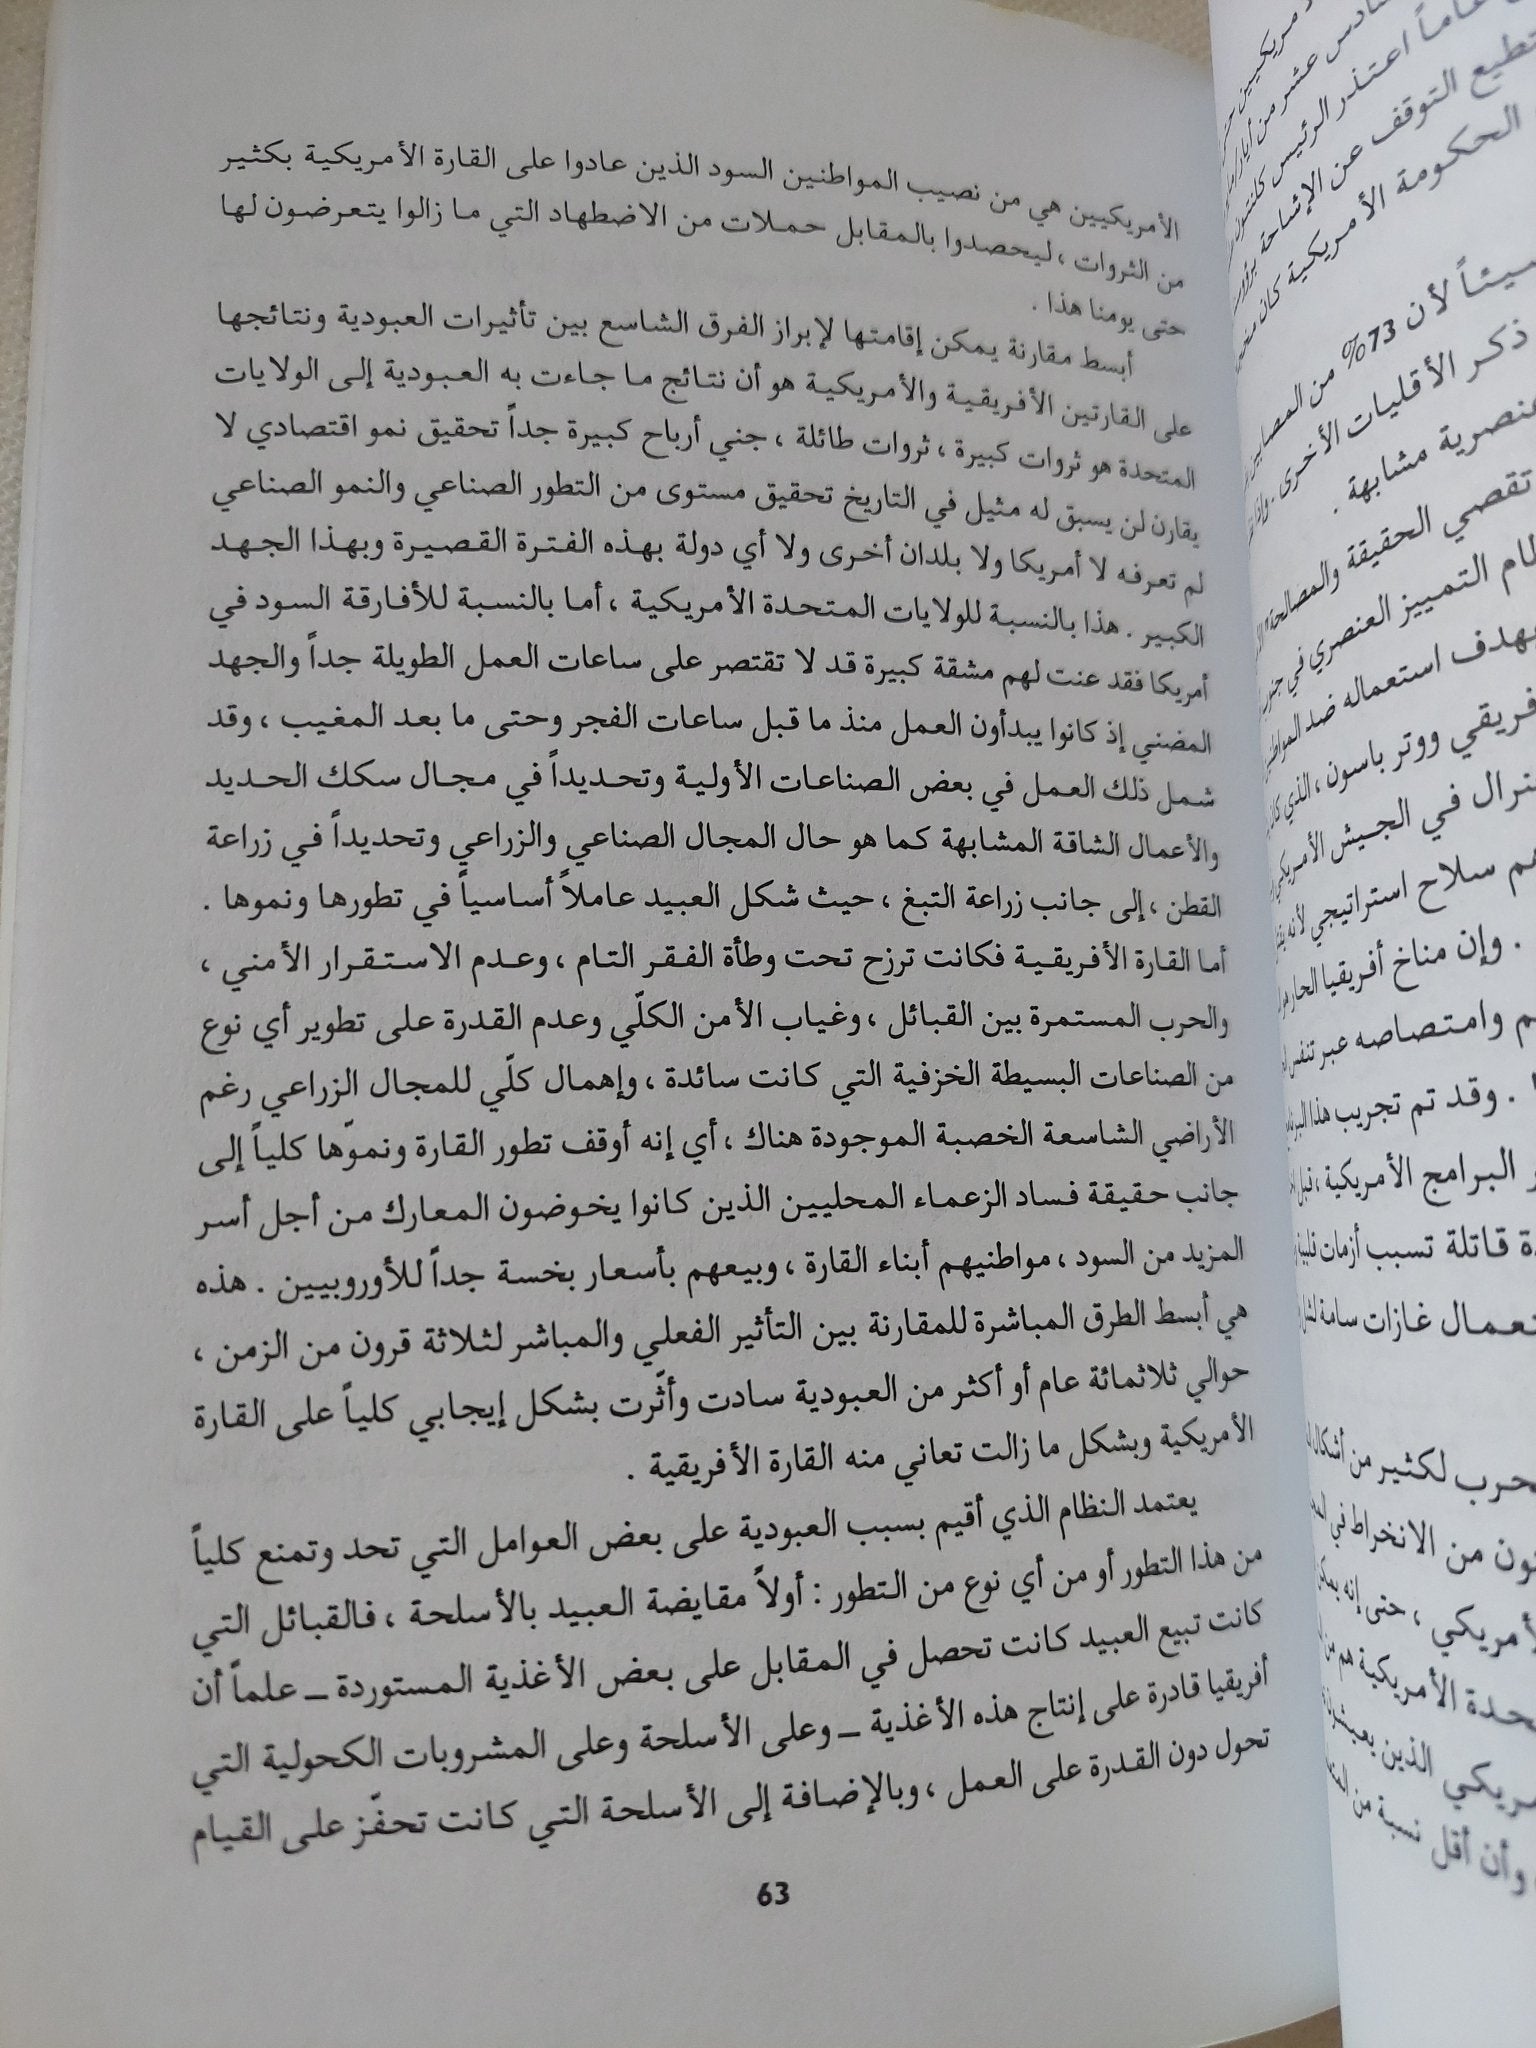 الأمريكيين هي من نصيب المواطنين السود الذين عادوا على القارة الأمريكية بكثير
من الثروات ، ليحصدوا بالمقابل حملات من الاضطهاد التي ما زالوا يتعرضون لها
حتى يومنا هذا .
أبسط مقارنة يمكن إقامتها لإبراز الفرق الشاسع بين تأثيرات العبودية ونتائجها
على القارتين الأفريقية والأمريكية هو أن نتائج ما جاءت به العبودية إلى الولايات
المتحدة هو ثروات كبيرة ، ثروات طائلة ، جني أرباح كبيرة جداً تحقيق نمو اقتصادي لا
يقارن لن يسبق له مثيل في التاريخ تحقيق مستوى من التطور الصناعي والنمو الصناعي
لم تعرفه لا أمريكا ولا بلدان أخرى ولا أي دولة بهذه الفترة القصيرة وبهذا الجهد
الكبير . هذا بالنسبة للولايات المتحدة الأمريكية ، أما بالنسبة للأفارقة السود في
أمريكا فقد عنت لهم مشقة كبيرة قد لا تقتصر على ساعات العمل الطويلة جداً والجهد
المضني إذ كانوا يبدأون العمل منذ ما قبل ساعات الفجر وحتى ما بعد المغيب ، وقد
شمل ذلك العمل في بعض الصناعات الأولية وتحديداً في مجال سكك الحديد
والأعمال الشاقة المشابهة كما هو حال المجال الصناعي والزراعي وتحديداً في زراعة
القطن ، إلى جانب زراعة التبغ ، حيث شكل العبيد عاملاً أساسياً في تطورها ونموها .
أما القارة الأفريقية فكانت ترزح تحت وطأة الفقر التام ، وعدم الاستقرار الأمني ،
والحرب المستمرة بين القبائل ، وغياب الأمن الكلّي وعدم القدرة على تطوير أي نوع
من الصناعات البسيطة الخزفية التي كانت سائدة ، وإهمال كلّي للمجال الزراعي رغم
الأراضي الشاسعة الخصبة الموجودة هناك ، أي إنه أوقف تطور القارة ونموّها كلياً إلى
جانب حقيقة فساد الزعماء المحليين الذين كانوا يخوضون المعارك من أجل أسر
المزيد من السود ، مواطنيهم أبناء القارة ، وبيعهم بأسعار بخسة جداً للأوروبيين . هذه
هي أبسط الطرق المباشرة للمقارنة بين التأثير الفعلي والمباشر لثلاثة قرون من الزمن ،
حوالي ثلاثمائة عام أو أكثر من العبودية سادت وأثّرت بشكل إيجابي كلياً على القارة
الأمريكية وبشكل ما زالت تعاني منه القارة الأفريقية .
يعتمد النظام الذي أقيم بسبب العبودية على بعض العوامل التي تحد وتمنع كلياً
من هذا التطور أو من أي نوع من التطور : أولاً مقايضة العبيد بالأسلحة ، فالقبائل التي
كانت تبيع العبيد كانت تحصل في المقابل على بعض الأغذية المستوردة ـ علماً أن
أفريقيا قادرة على إنتاج هذه الأغذية ـ وعلى الأسلحة وعلى المشروبات الكحولية التي
تحول دون القدرة على العمل ، وبالإضافة إلى الأسلحة التي كانت تحفّز على القيام
63
اعتذر الرئيس كلنتون
التوقف عن الإشاحة
الحكومة الأمريكية كان
لأن 73% من
ذكر الأقليات الأخرى
عنصرية مشابهة .
تقصي الحقيقة والمصالحة
التمييز العنصري في
بهدف استعماله ضد
ووتر باسون ، الذي
في الجيش
سلاح استراتيجي لأنه
. وإن مناخ أفريقيا الحار
وامتصاصه عبر تنفس
. وقد تم تجريب هذا
البرامج الأمريكية ، قبل
قاتلة تسبب أزمات قلبية
غازات سامة
لكثير من أشكال
من الانخراط في
، حتى إنه يمكن
الأمريكية هم من
الذين يعيشون
وأن أقل نسبة من